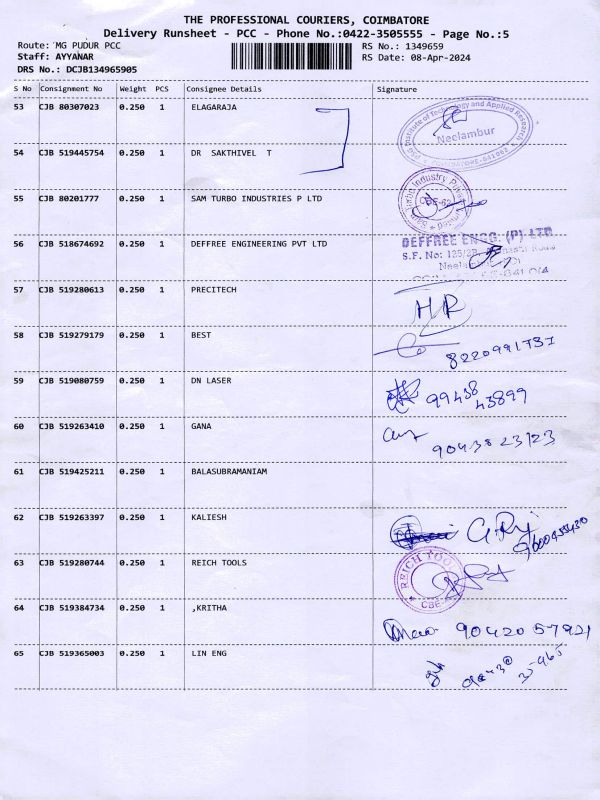 THE PROFESSIONAL COURIERS, COIMBATORE
Delivery Runsheet - PCC - Phone No.:0422-3505555 - Page No.:5
Route: MG PUDUR PCC RS No.: 1349659
Staff: AYYANAR RS Date: 08-Apr-2024
DRS No.: DCJB134965905
S No Consignment No Weight PCS Consignee Details Signature
53 CJB 80307023 0.250 1 ELAGARAJA
PSG Institute of Technology and Applied Research
Neelambur
54 CJB 519445754 0.250 1 DR SAKTHIVEL T
55 CJB 80201777 0.250 1 SAM TURBO INDUSTRIES P LTD
56 CJB 518674692 0.250 1 DEFFREE ENGINEERING PVT LTD
DEFFREE ENGG. (P) LTD
S.F. No: 125/2B, Road
57 CJB 519280613 0.250 1 PRECITECH
HR
58 CJB 519279179 0.250 1 BEST
8220991737
59 CJB 519080759 0.250 1 DN LASER
99438
43899
60 CJB 519263410 0.250 1 GANA
9043823123
61 CJB 519425211 0.250 1 BALASUBRAMANIAM
62 CJB 519263397 0.250 1 KALIESH
63 CJB 519280744 0.250 1 REICH TOOLS
REICH TOOLS
CBE
64 CJB 519384734 0.250 1 ,KRITHA
9042057921
65 CJB 519365003 0.250 1 LIN ENG